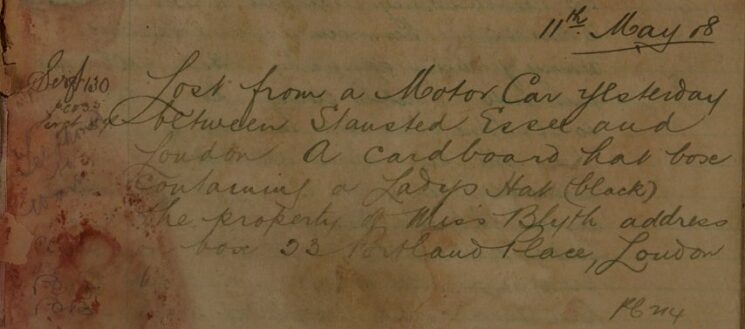 11th May 08
Sergt 30
Lost from a Motor Car yesterday
between Stansted Essex and
London A cardboard hat box
containing a Ladys Hat (black)
the property of Miss Blyth address
box 33 Portland Place, London